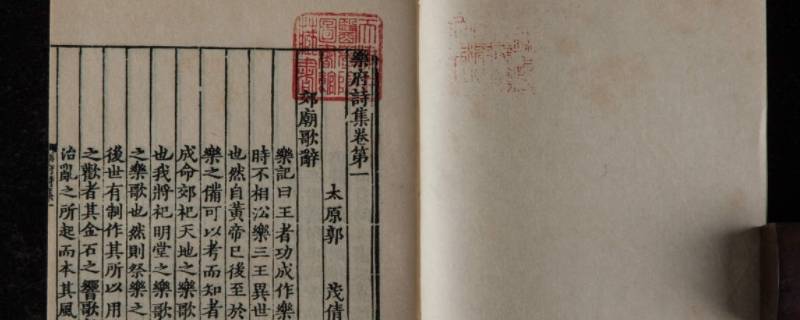 樂府詩集卷第一
太原郭 茂倩
郊廟歌辭
樂記曰王者功成作樂
時不相㳂樂三王異世
也然自黃帝已後至於
樂之備可以考而知者
成命郊祀天地之樂歌
也我將祀明堂之樂歌
之樂歌也然則祭樂之
後世有制作其所以用
之歡者其金石之響歌
治亂之所起而本其風